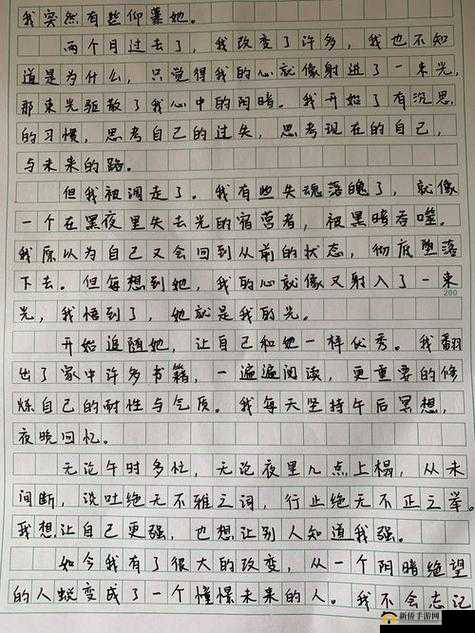 我突然有些仰慕她。
两个月过去了，我改变了许多，我也不知
道是为什么，只觉得我的心就像射进了一束光，
那束光驱散了我心中的阴暗。我开始了有沉思
的习惯，思考自己的过失，思考现在的自己，
与未来的路。
但我被调走了。我有些失魂落魄了，就像
一个在黑夜里失去光的宿营者，被黑暗吞噬。
我原以为自己又会回到从前的状态，彻底堕落
下去。但每想到她，我的心就像又射入了一束
200
光，我悟到了，她就是我的光。
开始追随她，让自己和她一样优秀。我翻
出了家中许多书籍，一遍遍阅读，更重要的修
炼自己的耐性与气质。我每天坚持午后冥想，
夜晚回忆。
无论午时多忙，无论夜里几点上榻，从未
间断，谈吐绝无不雅之词，行止绝无不正之举。
我想让自己更强，也想让别人知道我强。
如今我有了很大的改变，从一个阴暗绝望
的人蜕变成了一个憧憬未来的人。我不会忘记
新侨手游网